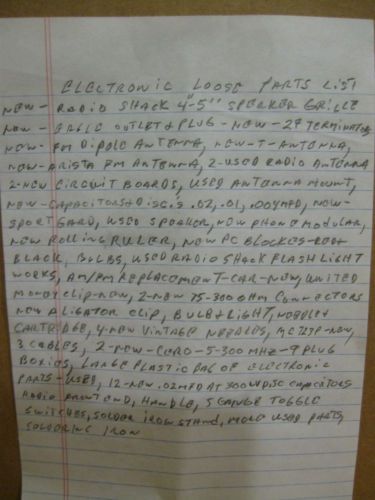 ELECTRONIC LOOSE PARTS LIST
NEW - RADIO SHACK 4"-5" SPEAKER GRILLE
NEW - EAGLE OUTLET & PLUG - NEW - 29 TERMINATORS
NEW - FM DIPOLE ANTENNA, NEW - T - ANTENNA,
NEW - ARISTA FM ANTENNA, 2 - USED RADIO ANTENNA
2 - NEW CIRCUIT BOARDS, USED ANTENNA MOUNT,
NEW - CAPACITORS DISC.S .02, .01, MFD, NEW -
SPORT GARD, USED SPEAKER, NEW PHONE MODULAR,
NEW ROLLING RULER, NEW PC BLOCKES - RED &
BLACK, BULBS, USED RADIO SHACK FLASH LIGHT
WORKS, AM/FM REPLACEMENT - CAR - NEW, UNITED
MONEY CLIP - NEW, 2 - NEW 75-300 OHM CONNECTORS
NEW ALIGATOR CLIP, BULB & LIGHT, NEEDLE &
CARTRIDGE, 4 NEW VINTAGE NEEDLES, NEW,
3 CABLES, 2 - NEW - 5-300 MHZ - 9 PLUG
BOXIES, LARGE PLASTIC BAG OF ELECTRONIC
PARTS - USED, 12 - NEW .02 MFD AT 300V DISC CAPACITORS
RADIO FRONT END, HANDLE, 5 GANGE TOGGLE
SWITCHES, SOLDER IRON STAND, MORE USED PARTS,
SOLDERING IRON